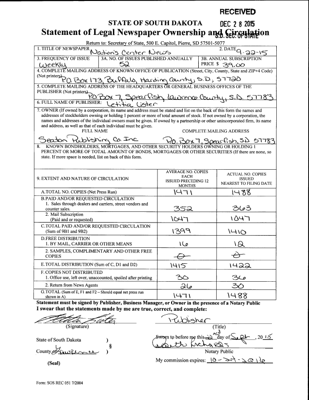 RECEIVED
DEC 28 2015
S.D. SEC. OF STATE
STATE OF SOUTH DAKOTA
Statement of Legal Newspaper Ownership and Circulation
Return to: Secretary of State, 500 E. Capitol, Pierre, SD 57501-5077
1. TITLE OF NEWSPAPER
Nation's Center News
2. DATE
9-22-15
3. FREQUENCY OF ISSUE
Weekly
3A. NO. OF ISSUES PUBLISHED ANNUALLY
52
3B. ANNUAL SUBSCRIPTION
PRICE $ 39.00
4. COMPLETE MAILING ADDRESS OF KNOWN OFFICE OF PUBLICATION (Street, City, County, State and ZIP+4 Code)
(Not printer)
PO Box 173, Buffalo, Harding County, S.D. 57720
5. COMPLETE MAILING ADDRESS OF THE HEADQUARTERS OR GENERAL BUSINESS OFFICES OF THE
PUBLISHER (Not printer)
PO Box 7, Spearfish, Lawrence County, S.D. 57783
6. FULL NAME OF PUBLISHER:
Letitia Lister
7. OWNER (If owned by a corporation, its name and address must be stated and also on the back of this form the names and
addresses of stockholders owning or holding 1 percent or more of total amount of stock. If not owned by a corporation, the
names and addresses of the individual owners must be given. If owned by a partnership or other unincorporated firm, its name
and address, as well as that of each individual must be given.
FULL NAME
COMPLETE MAILING ADDRESS
Seaton Publishing Co Inc
PO Box 7 Spearfish SD 57783
8. KNOWN BONDHOLDERS, MORTGAGES, AND OTHER SECURITY HOLDERS OWNING OR HOLDING 1
PERCENT OR MORE OF TOTAL AMOUNT OF BONDS, MORTGAGES OR OTHER SECURITIES (If there are none, so
state. If more space is needed, list on back of this form.
9. EXTENT AND NATURE OF CIRCULATION
AVERAGE NO. COPIES
EACH
ISSUED PRECEDING 12
MONTHS
ACTUAL NO. COPIES
ISSUED
NEAREST TO FILING DATE
A. TOTAL NO. COPIES (Net Press Run)
1471
1488
B. PAID AND/OR REQUESTED CIRCULATION
1. Sales through dealers and carriers, street vendors and
counter sales
352
363
2. Mail Subscription
(Paid and or requested)
1047
1047
C. TOTAL PAID AND/OR REQUESTED CIRCULATION
(Sum of 9B1 and 9B2)
1399
1410
D. FREE DISTRIBUTION
1. BY MAIL, CARRIER OR OTHER MEANS
16
12
2. SAMPLES, COMPLIMENTARY AND OTHER FREE
COPIES
0
0
E. TOTAL DISTRIBUTION (Sum of C, D1 and D2)
1415
1422
F. COPIES NOT DISTRIBUTED
1. Office use, left over, unaccounted, spoiled after printing
30
36
2. Return from News Agents
26
30
G. TOTAL (Sum of E, F1 and F2 - Should equal net press run
shown in A)
1471
1488
Statement must be signed by Publisher, Business Manager, or Owner in the presence of a Notary Public
I swear that the statements made by me are true, correct, and complete:
Publisher
(Signature)
(Title)
State of South Dakota )
) §
County of Lawrence )
(Seal)
Sworn to before me this 22 day of Sept. 2015
Notary Public
My commission expires:
Form: SOS REC 051 7/2004